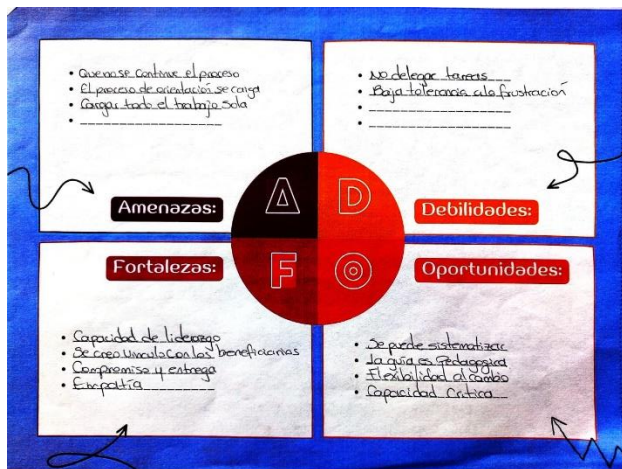 Que no se continue el proceso
El proceso de orientación se caiga
Cargar todo el trabajo sola
Amenazas:
No delegar tareas
Baja tolerancia a la frustración
Debilidades:
A D
F O
Fortalezas:
Capacidad de liderazgo
Se creo vinculo con los beneficiarias
Compromiso y entrega
Empatía
Oportunidades:
Se puede sistematizar
La guia es Pedagogica
Flexibilidad al cambio
Capacidad Critica